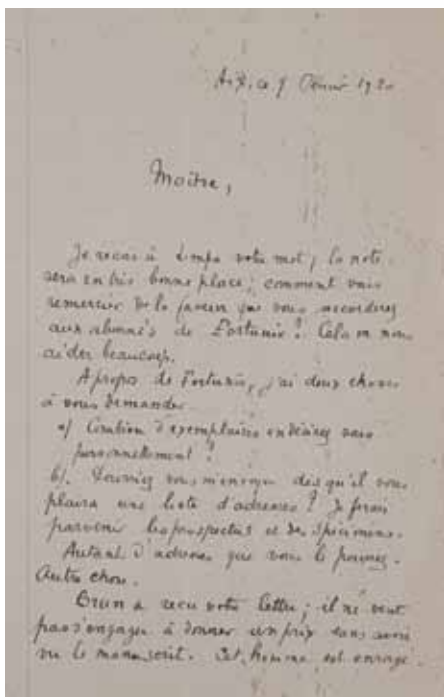 Aix, ce 9 Février 1920
Maître,
Je reçois à temps votre mot ; la note
sera en très bonne place ; comment vous
remercier de la faveur que vous accorderez
aux abonnés de Fortunio ? Cela va nous
aider beaucoup.
A propos de Fortunio, j'ai deux choses
à vous demander
a/ Combien d'exemplaires en désirez vous
personnellement ?
b/. Pourriez vous m'envoyer dès qu'il vous
plaira une liste d'adresses ? Je ferais
parvenir les prospectus et des spécimens.
Autant d'adresses que vous le pourrez.
Autre chose.
Brun a reçu votre lettre ; il ne veut
pas s'engager à donner un prix sans avoir
vu le manuscrit. Cet homme est enragé.